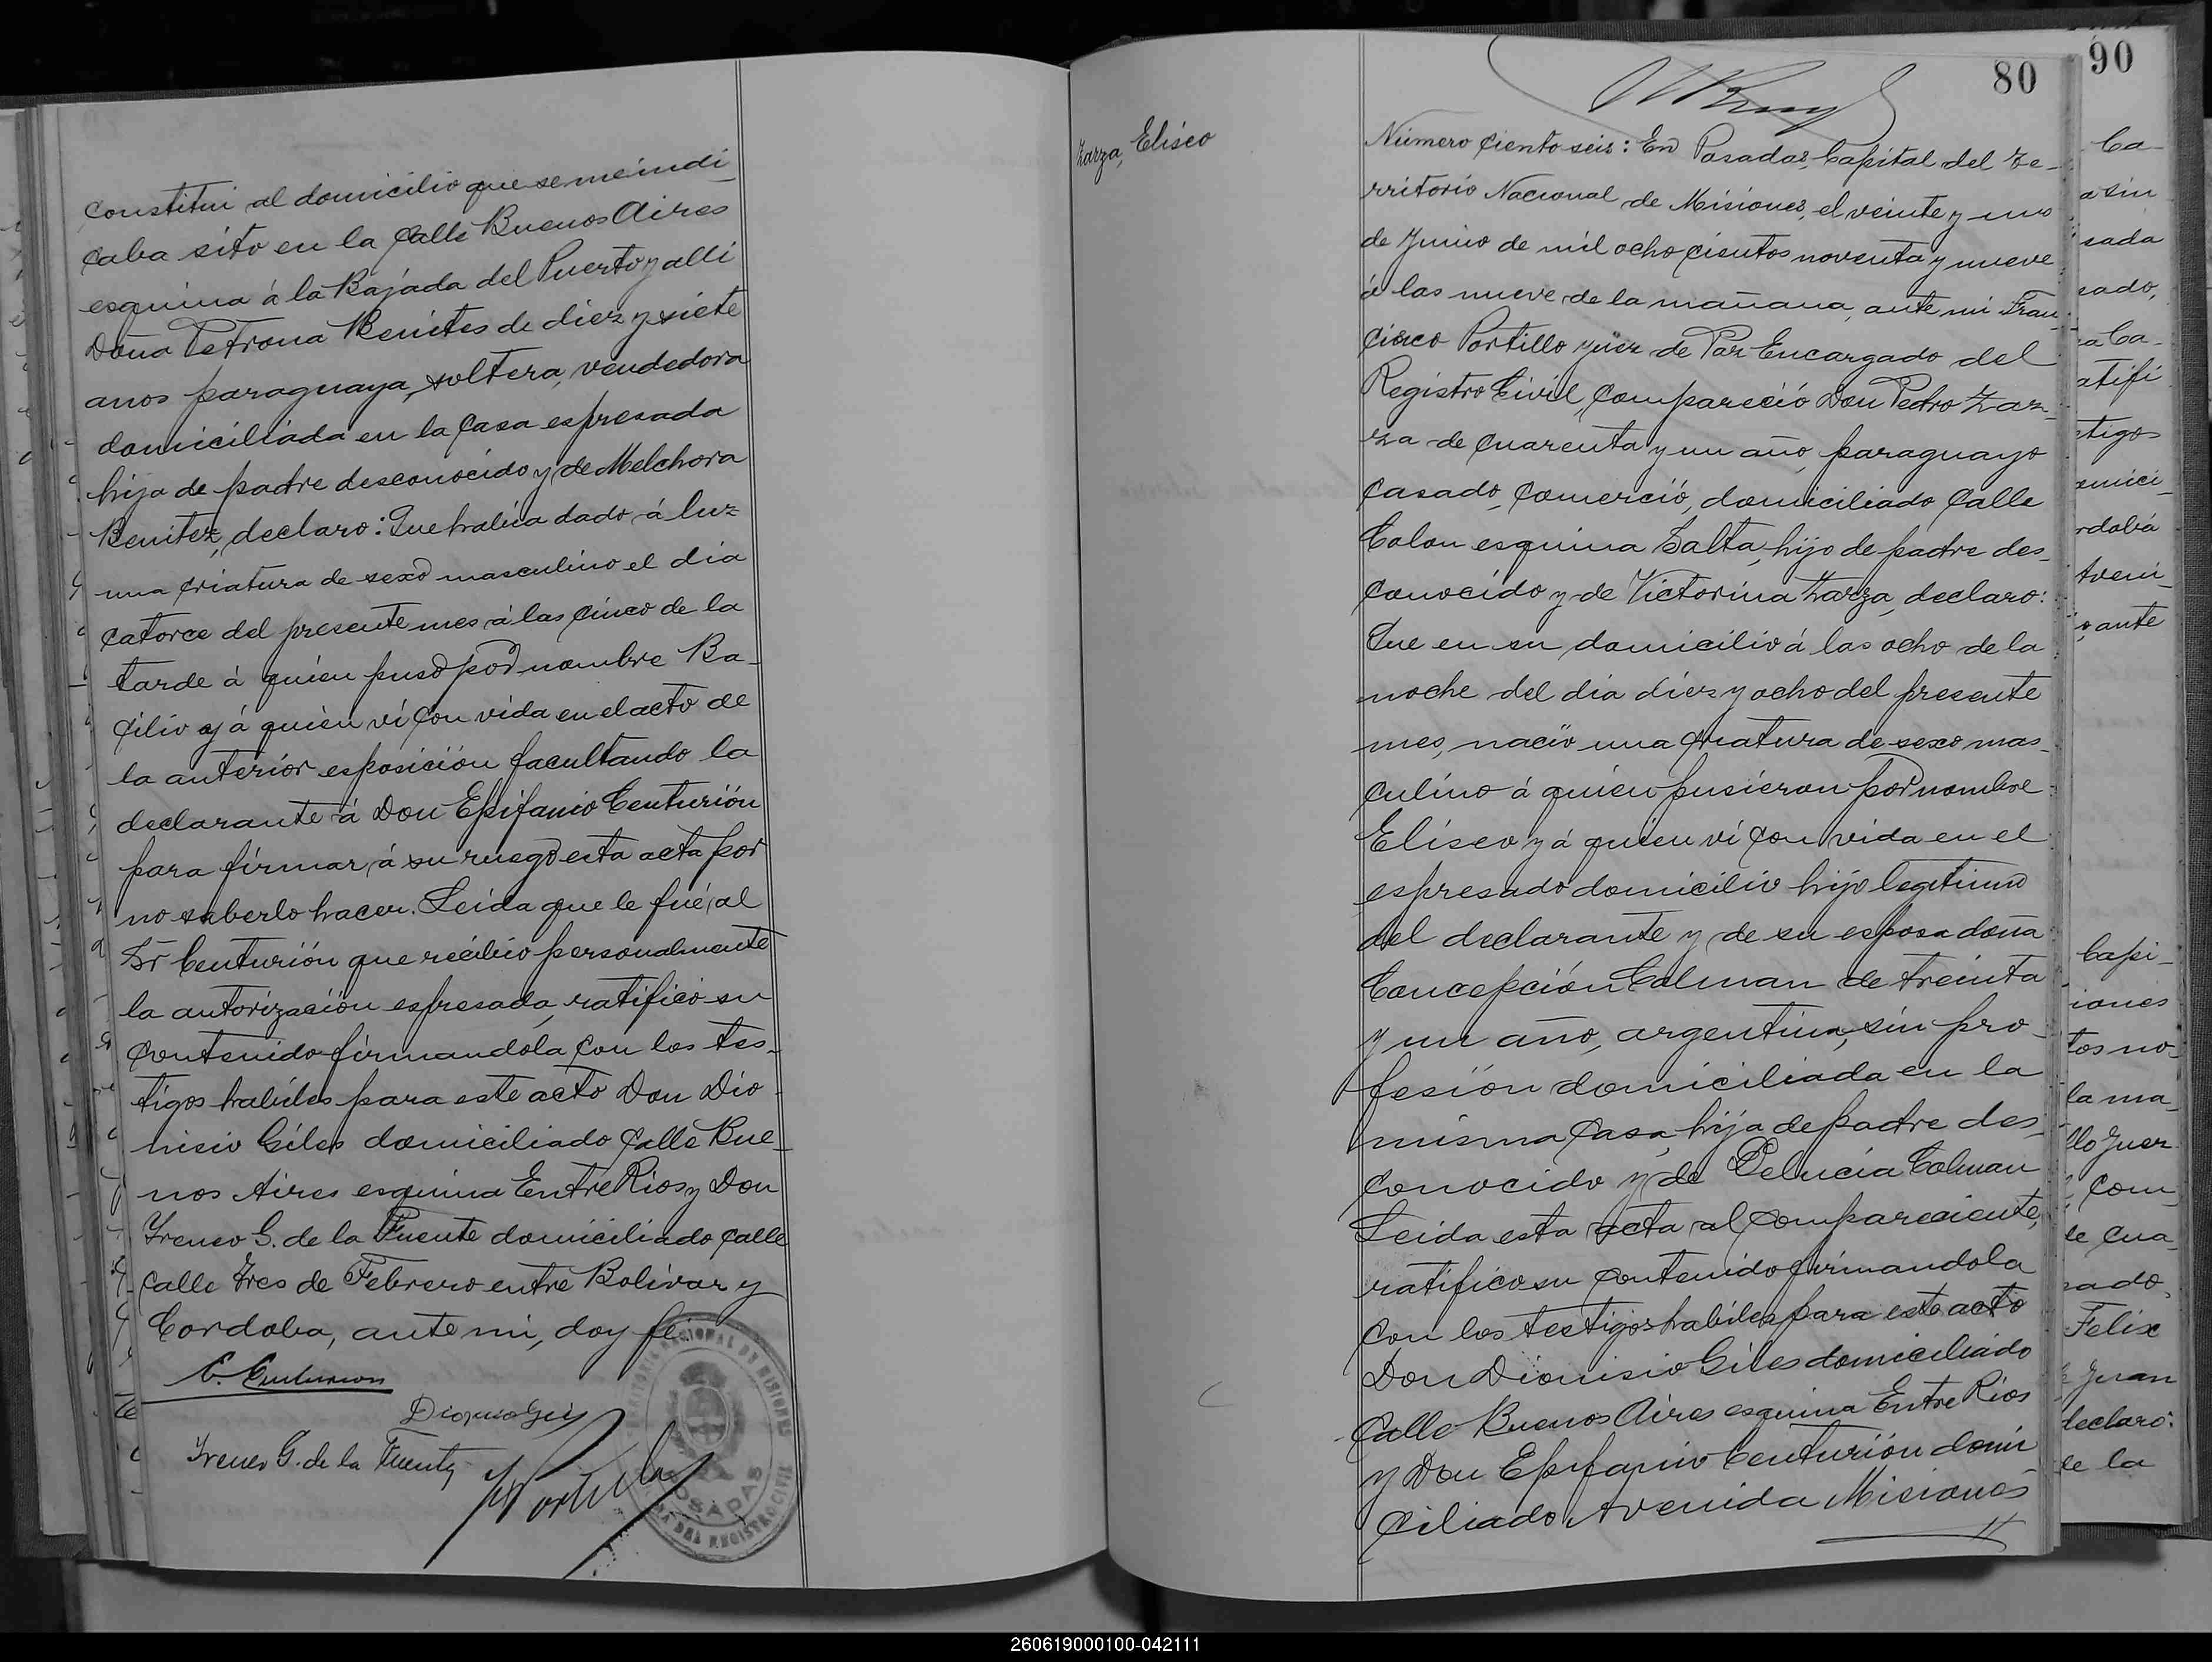 constitui al domicilio que se me indi_
caba sito en la calle Buenos Aires
esquina á la Bajada del Puerto y alli
Doña Petrona Benites de diez y siete
anos paraguaya, soltera, vendedora
domiciliada en la casa espresada
hija de padre desconocido y de Melchora
Benitez, declaro: Que habia dado á luz
una criatura de sexo masculino el dia
catorce del presente mes á las cinco de la
tarde á quien puso por nombre Ba_
cilio y á quien ví con vida en el acto de
la anterior esposición facultando la
declarante á Don Epifanio Centurión
para firmar, á su ruego esta acta por
no saberlo hacer. Leida que le fué, al
Sr Centurión que recibio personalmente
la autorización espresada, ratificó su
contenido firmandola con los tes_
tigos habiles para este acto Don Dio_
nisio Giles domiciliado calle Bue_
nos Aires esquina Entre Rios y Don
Yreneo G. de la Fuente domiciliado calle
calle Tres de Febrero entre Bolivar y
Cordoba, ante mi, doy fé.
E. Centurion
Dionisio Giles
Yreneo G. de la Fuente
F Portillo
POSADAS
80
90
Zarza, Eliseo
Número ciento seis: En Posadas, Capital del Te_
rritorio Nacional de Misiones, el veinte y uno
de Junio de mil ocho cientos noventa y nueve
á las nueve de la mañana, ante mi Fran_
cisco Portillo Juez de Paz Encargado del
Registro Civil, compareció Don Pedro Zar_
za de cuarenta y un año, paraguayo
casado, comercio, domiciliado calle
Colon esquina Salta, hijo de padre des_
conocido y de Victorina Zarza, declaro:
Que en su domicilio á las ocho de la
noche del dia diez y ocho del presente
mes, nació una criatura de sexo mas_
culino á quien pusieron por nombre
Eliseo y á quien ví con vida en el
espresado domicilio hijo legitimo
del declarante y de su esposa doña
Concepción Colman de treinta
y un año, argentina, sin pro_
fesión domiciliada en la
misma casa, hija de padre des_
conocido y de Delucia Colman
Leida esta acta al compareciente,
ratifico su contenido firmandola
con los testigos habiles para este acto
Don Dionisio Giles domiciliado
calle Buenos Aires esquina Entre Rios
y Don Epifanio Centurión domi_
ciliado Avenida Misiones
260619000100-042111